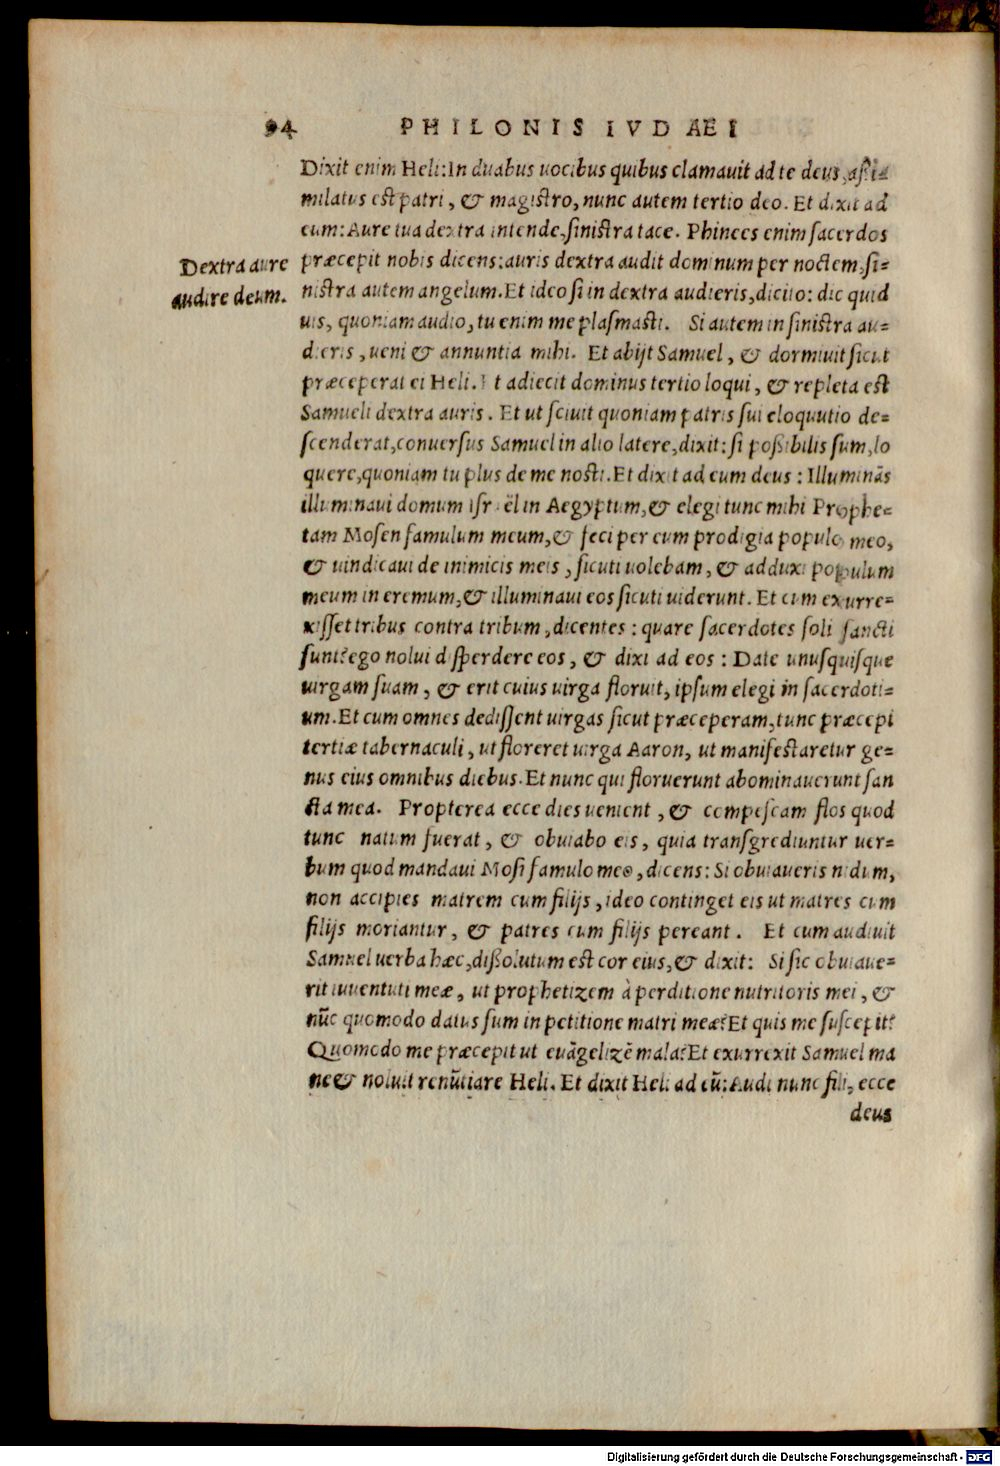 94 PHILONIS IVDAEI
Dixit enim Heli:In duabus uocibus quibus clamauit ad te deus, aßi-
milatus est patri, & magistro, nunc autem tertio deo. Et dixit ad
eum: Aure tua dextra intende, sinistra tace. Phinees enim sacerdos
Dextra aure
audire deum.
præcepit nobis dicens: auris dextra audit dominum per noctem, si-
nistra autem angelum. Et ideo si in dextra audieris, dicito: dic quid
uis, quoniam audio, tu enim me plasmasti. Si autem in sinistra au-
dieris, ueni & annuntia mihi. Et abijt Samuel, & dormiuit sicut
præceperat ei Heli. Et adiecit dominus tertio loqui, & repleta est
Samueli dextra auris. Et ut sciuit quoniam patris sui eloquutio de-
scenderat, conuersus Samuel in alio latere, dixit: si poßibilis sum, lo
quere, quoniam tu plus de me nosti. Et dixit ad eum deus: Illuminãs
illuminaui domum isrаël in Aegyptum, & elegi tunc mihi Prophe-
tam Mosen famulum meum, & feci per eum prodigia populo meo,
& uindicaui de inimicis meis, sicuti uolebam, & adduxi populum
meum in eremum, & illuminaui eos sicuti uiderunt. Et cum exurre-
xisset tribus contra tribum, dicentes: quare sacerdotes soli sancti
sunt? ego nolui disperdere eos, & dixi ad eos: Date unusquisque
uirgam suam, & erit cuius uirga floruit, ipsum elegi in sacerdoti-
um. Et cum omnes dedissent uirgas sicut præceperam, tunc præcepi
tertiæ tabernaculi, ut floreret uirga Aaron, ut manifestaretur ge-
nus eius omnibus diebus. Et nunc qui floruerunt abominauerunt san
cta mea. Propterea ecce dies uenient, & compescam flos quod
tunc natum fuerat, & obuiabo eis, quia transgrediuntur uer-
bum quod mandaui Mosi famulo meo, dicens: Si obuiaueris nidum,
non accipies matrem cum filijs, ideo continget eis ut matres cum
filijs moriantur, & patres cum filijs pereant. Et cum audiuit
Samuel uerba hæc, dißolutum est cor eius, & dixit: Si sic obuiaue-
rit iuuentuti meæ, ut prophetizem à perditione nutritoris mei, &
nũc quomodo datus sum in petitione matri meæ? Et quis me suscepit?
Quomodo me præcepit ut euãgelizẽ mala? Et exurrexit Samuel ma
ne & noluit renũtiare Heli. Et dixit Heli ad eũ: Audi nunc fili, ecce
deus
Digitalisierung gefördert durch die Deutsche Forschungsgemeinschaft - DFG